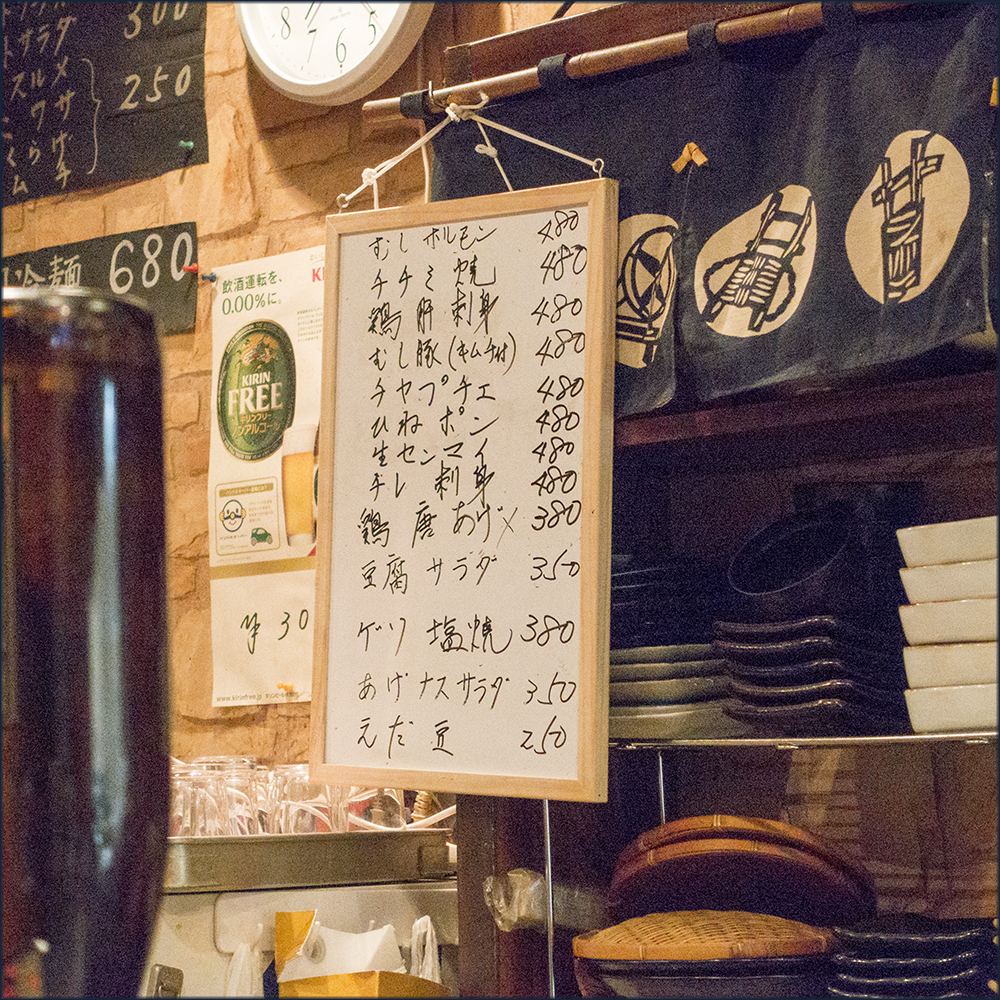 300
サラダ
スルメ
250
冷麺 680
8 7 6 5
飲酒運転を、
0.00%に。
KIRIN
FREE
キリンフリー
ノンアルコール
¥30
www.kirinfree.jp
むしホルモン 480
チヂミ焼 480
鶏肝刺身 480
むし豚(キムチ付) 480
チャプチェ 480
ひねポン 480
生センマイ 480
チレ刺身 480
鶏唐あげ× 380
豆腐サラダ 350
ゲソ塩焼 380
あげナスサラダ 350
えだ豆 250